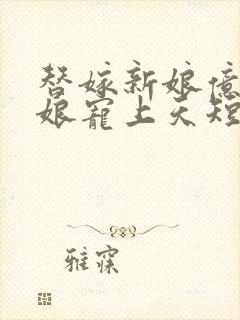 替嫁新娘億
娘寵上天短
雅寐